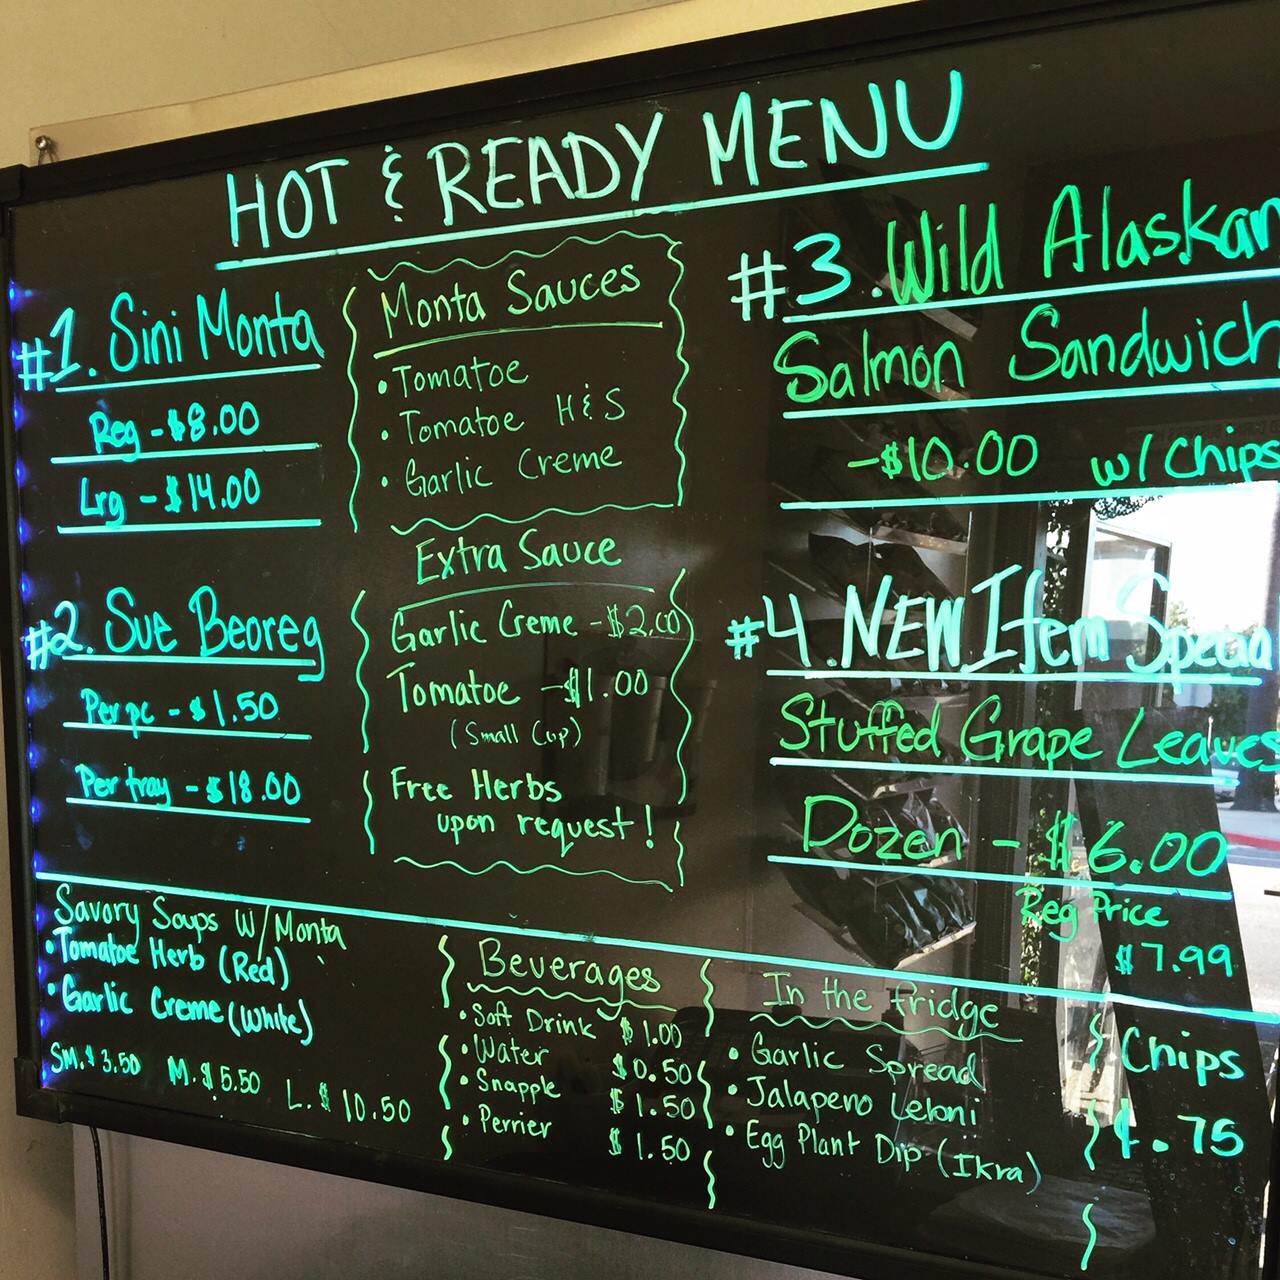 HOT & READY MENU
#1. Sini Monta
Reg - $8.00
Lrg - $14.00
#2. Sue Beoreg
Per pc - $1.50
Per tray - $18.00
Monta Sauces
• Tomatoe
• Tomatoe H & S
• Garlic Creme
Extra Sauce
Garlic Creme - $2.00
Tomatoe - $1.00
(Small Cup)
Free Herbs
upon request!
#3. Wild Alaskan
Salmon Sandwich
- $10.00 w/ Chips
#4. NEW Item Special
Stuffed Grape Leaves
Dozen - $6.00
Reg Price
$7.99
Savory Soups W/ Monta
• Tomatoe Herb (Red)
• Garlic Creme (White)
SM. $3.50 M. $5.50 L. $10.50
Beverages
• Soft Drink $1.00
• Water $0.50
• Snapple $1.50
• Perrier $1.50
In the fridge
• Garlic Spread
• Jalapeno Leloni
• Egg Plant Dip (Ikra)
Chips
$.75